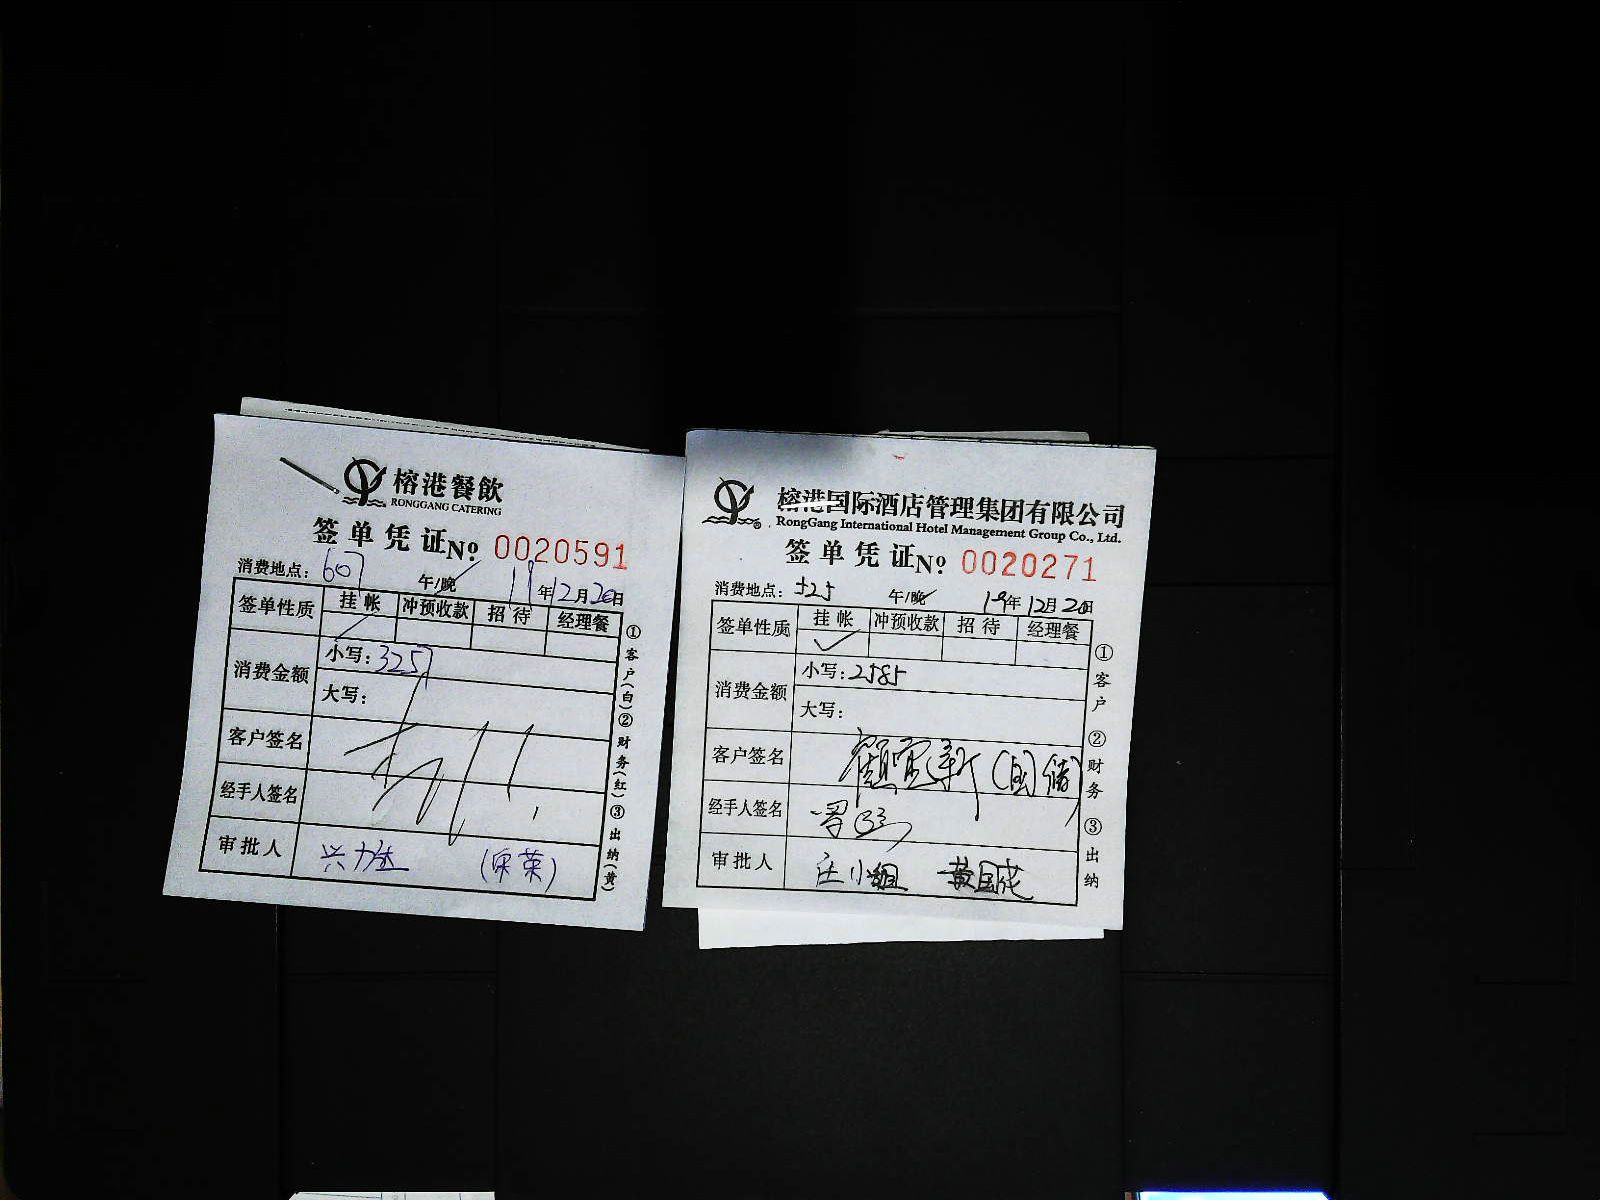 榕港餐飲
RONGGANG CATERING
签单凭证 № 0020591
消费地点: 607 午/晚 19年12月20日
签单性质 挂帐 冲预收款 招待 经理餐
消费金额 小写: 3257
大写:
客户签名
经手人签名
审批人
①客户(白)②财务(红)③出纳(黄)
榕港国际酒店管理集团有限公司
RongGang International Hotel Management Group Co., Ltd.
签单凭证 № 0020271
消费地点: 525 午/晚 19年12月20日
签单性质 挂帐 冲预收款 招待 经理餐
消费金额 小写: 2585
大写:
客户签名
经手人签名
审批人 庄小姐 黄国花
①客户 ②财务 ③出纳